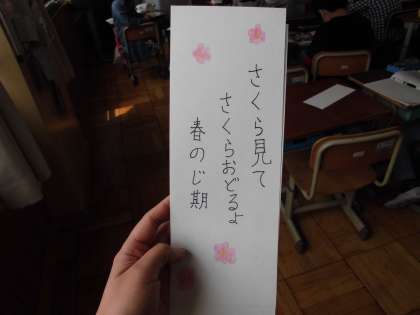 さくら見て
さくらおどるよ
春のじ期